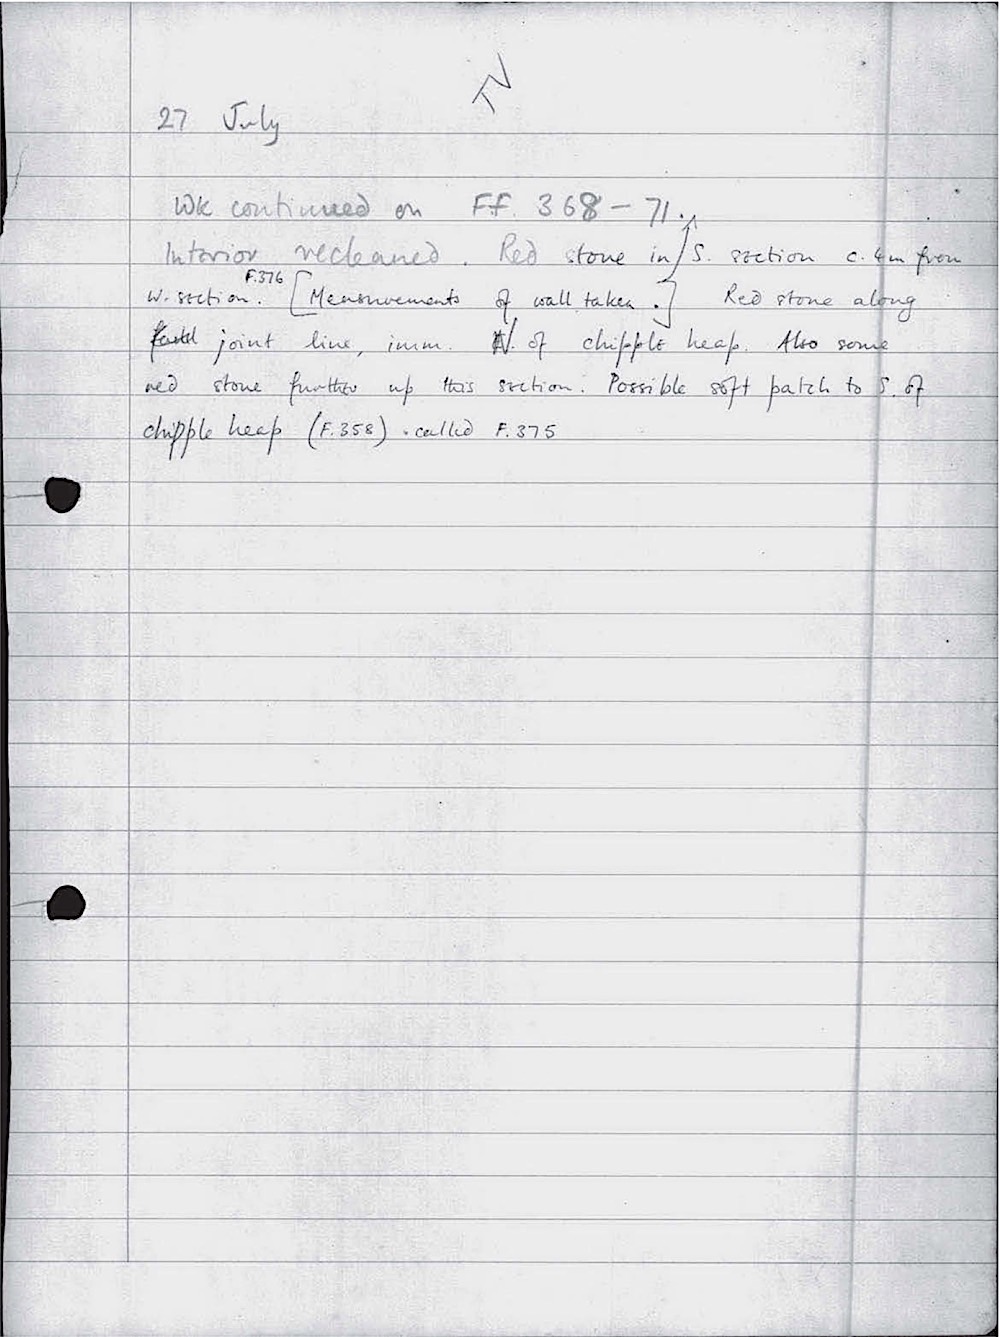 TV
27 July
Wk continued on Ff. 368-71.
Interior recleaned. Red stone in S. section c. 4m from
F.376
W. section. [Measurements of wall taken.] Red stone along
joint line, imm. N. of chipple heap. Also some
red stone further up this section. Possible soft patch to S. of
chipple heap (F.358). called F.375